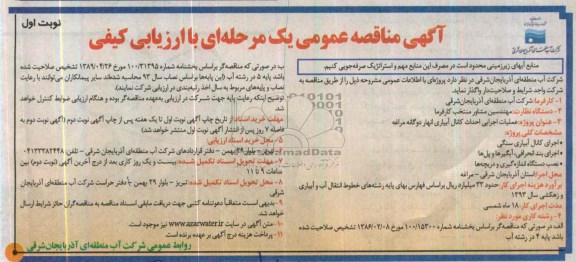 نوبت اول
آگهی مناقصه عمومی یک مرحله‌ای با ارزیابی کیفی
منابع آبهای زیرزمینی محدود است در مصرف این منابع مهم و استراتژیک صرفه‌جویی کنیم.
شرکت آب منطقه‌ای آذربایجان‌شرقی در نظر دارد پروژه‌ای با اطلاعات عمومی مشروحه ذیل را از طریق مناقصه به
شرکت واجد شرایط و صلاحیت‌دار واگذار نماید.
۱- کارفرما: شرکت آب منطقه‌ای آذربایجان‌شرقی
۲- دستگاه نظارت: مهندسین مشاور منتخب کارفرما
۳- عنوان پروژه: عملیات اجرایی احداث کانال آبیاری انهار دوگانه مراغه
مشخصات کلی پروژه:
• اجرای کانال آبیاری سنگی
• اجرای بند انحرافی، آبگیرها و پل‌ها
• نصب دستگاه اندازه‌گیری و دریچه‌ها
محل اجرا: استان آذربایجان شرقی - مراغه
برآورد هزینه اجرای کار: حدود ۴۳ میلیارد ریال براساس فهارس بهای پایه رشته‌های خطوط انتقال آب و آبیاری
و زهکشی سال ۱۳۹۳
مدت اجرای کار: ۱۸ ماه شمسی
۴- رشته کاری مورد نظر:
الف در صورتی که مناقصه‌گر براساس بخشنامه شماره ۱۰۰/۱۵۳۰۰ مورخ ۱۳۸۶/۰۲/۰۸ تشخیص صلاحیت شده
باشد پایه ۴ در رشته آب
ب در صورتی که مناقصه‌گر براساس بخشنامه شماره ۱۰۰/۳۱۳۹۵ مورخ ۱۳۸۹/۰۴/۲۶ تشخیص صلاحیت شده
باشد پایه ۵ در رشته آب (این پایه‌ها براساس نصاب سال ۹۳ محاسبه شده‌اند سایر پیمانکاران می‌توانند با رعایت
نصاب و پایه‌های مربوط به سال اخذ رتبه‌بندی در ارزیابی شرکت نمایند)
توضیح اینکه رعایت پایه جهت شرکت در ارزیابی به‌عهده مناقصه‌گر بوده و هنگام ارزیابی ضوابط کنترل خواهد
شد.
مهلت خرید اسناد: از تاریخ چاپ آگهی نوبت اول تا یک هفته پس از چاپ آگهی نوبت دوم (آگهی نوبت دوم به
فاصله ۷ روز پس از انتشار آگهی نوبت اول منتشر خواهد شد)
۵- محل خرید اسناد ارزیابی:
تبریز - بلوار ۲۹ بهمن - دفتر قراردادهای شرکت آب منطقه‌ای آذربایجان شرقی - تلفن:
۷- مهلت تحویل اسناد تکمیل شده: بیست و یک روز کاری بعد از درج آخرین آگهی (نوبت دوم) بین
ساعات ۹ تا ۱۱
۸- محل تحویل اسناد تکمیل شده: تبریز - بلوار ۲۹ بهمن - دفتر حراست شرکت آب منطقه‌ای آذربایجان
شرقی
۹- بدیهی است متعاقباً دعوتنامه کتبی جهت دریافت مابقی اسناد مناقصه به مناقصه‌گران حائز شرایط ارسال
خواهد شد.
۱۰- متن آگهی در سایت www.azarwater.ir نیز موجود است.
۱۱- پرداخت هزینه درج آگهی بر عهده برنده است.
روابط عمومی شرکت آب منطقه‌ای آذربایجان‌شرقی